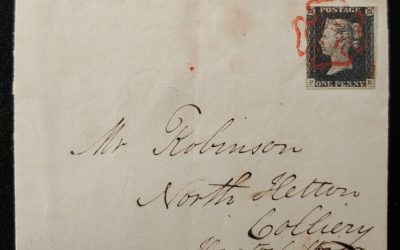 POSTAGE
ONE PENNY
Mr. Robinson
North Hetton
Colliery